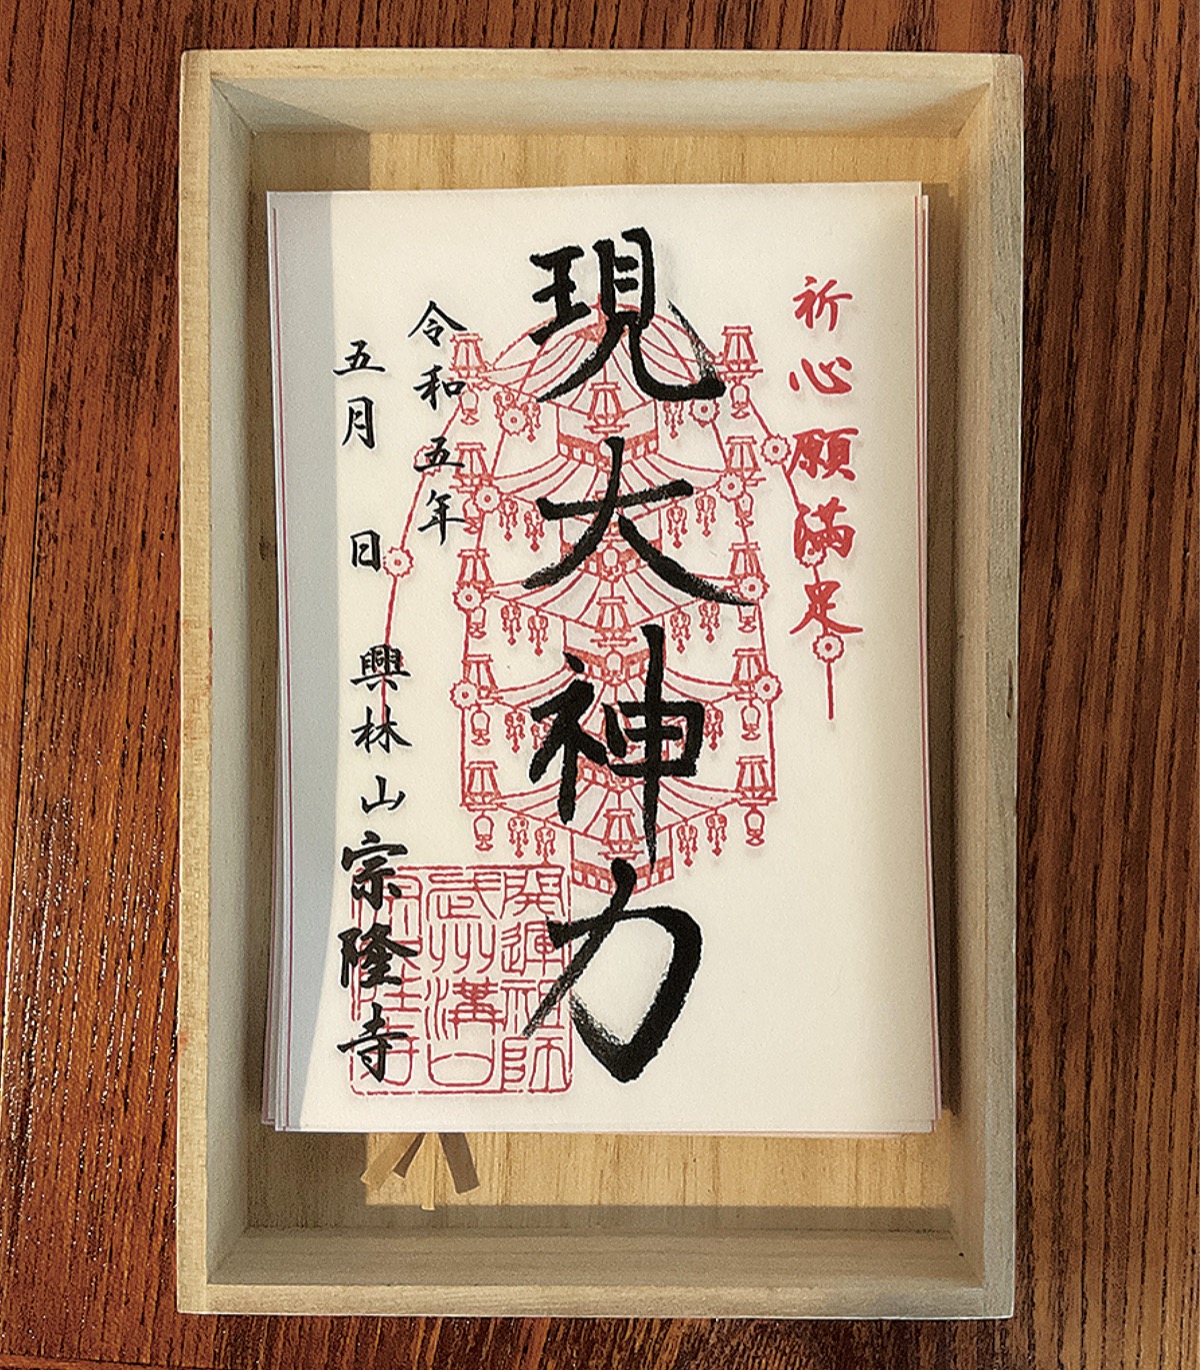 祈心願満足
現大神力
令和五年
五月 日 興林山宗隆寺
開運祖師
武州溝口
宗隆寺